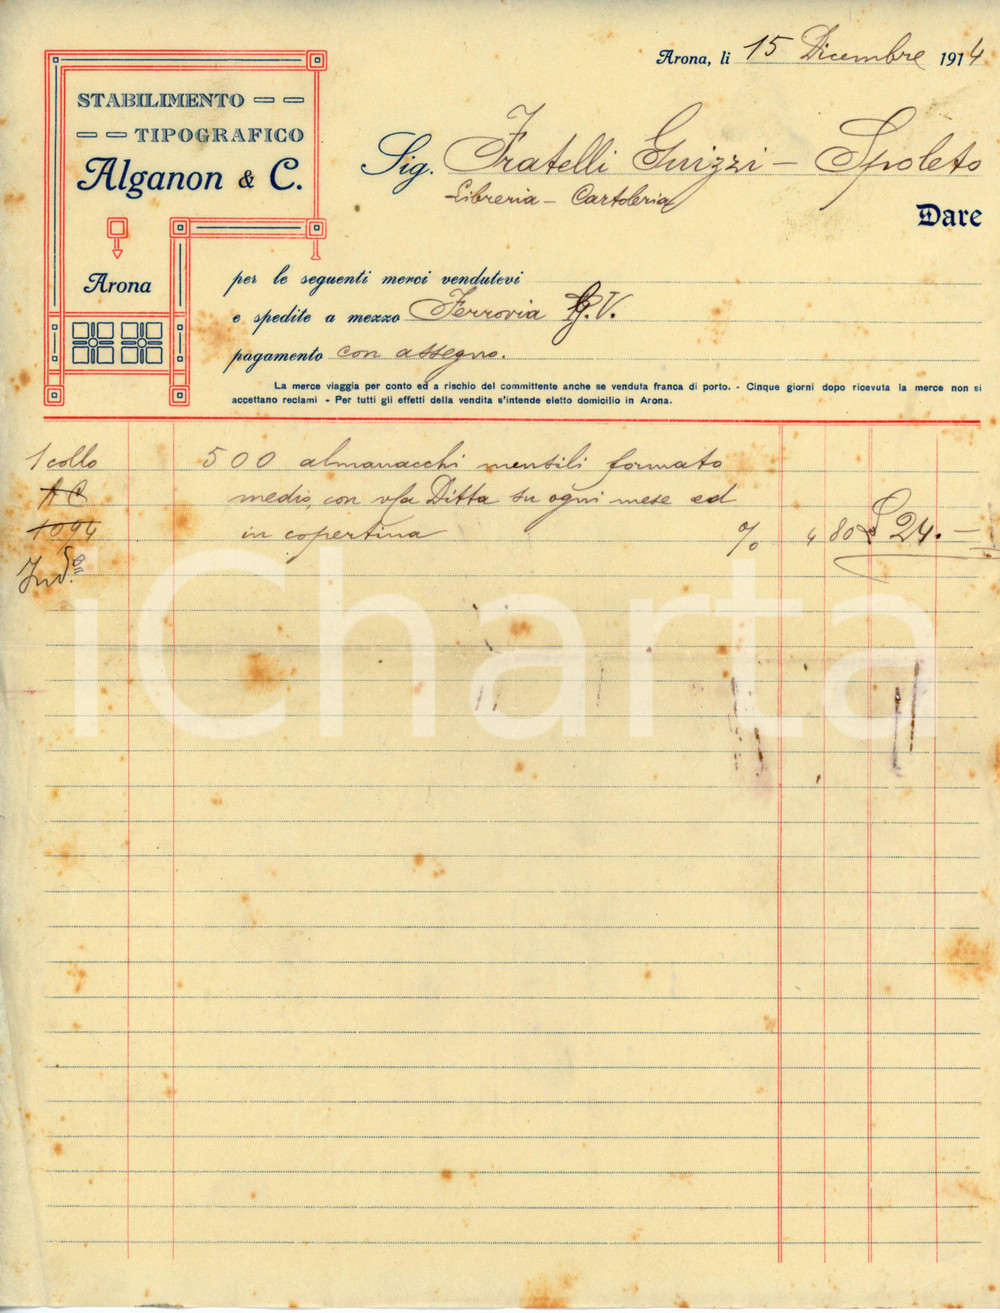 Arona, li 15 Dicembre 1914
STABILIMENTO
TIPOGRAFICO
Alganon & C.
Arona
Sig. Fratelli Guizzi - Spoleto
Libreria - Cartoleria
Dare
per le seguenti merci vendutevi
e spedite a mezzo Ferrovia G.V.
pagamento con assegno.
La merce viaggia per conto ed a rischio del committente anche se venduta franca di porto. - Cinque giorni dopo ricevuta la merce non si
accettano reclami - Per tutti gli effetti della vendita s'intende eletto domicilio in Arona.
1 collo 500 almanacchi mensili formato
AC medio, con v/a Ditta su ogni mese ed
1094 in copertina % 4 80 £ 24.-
iCharta